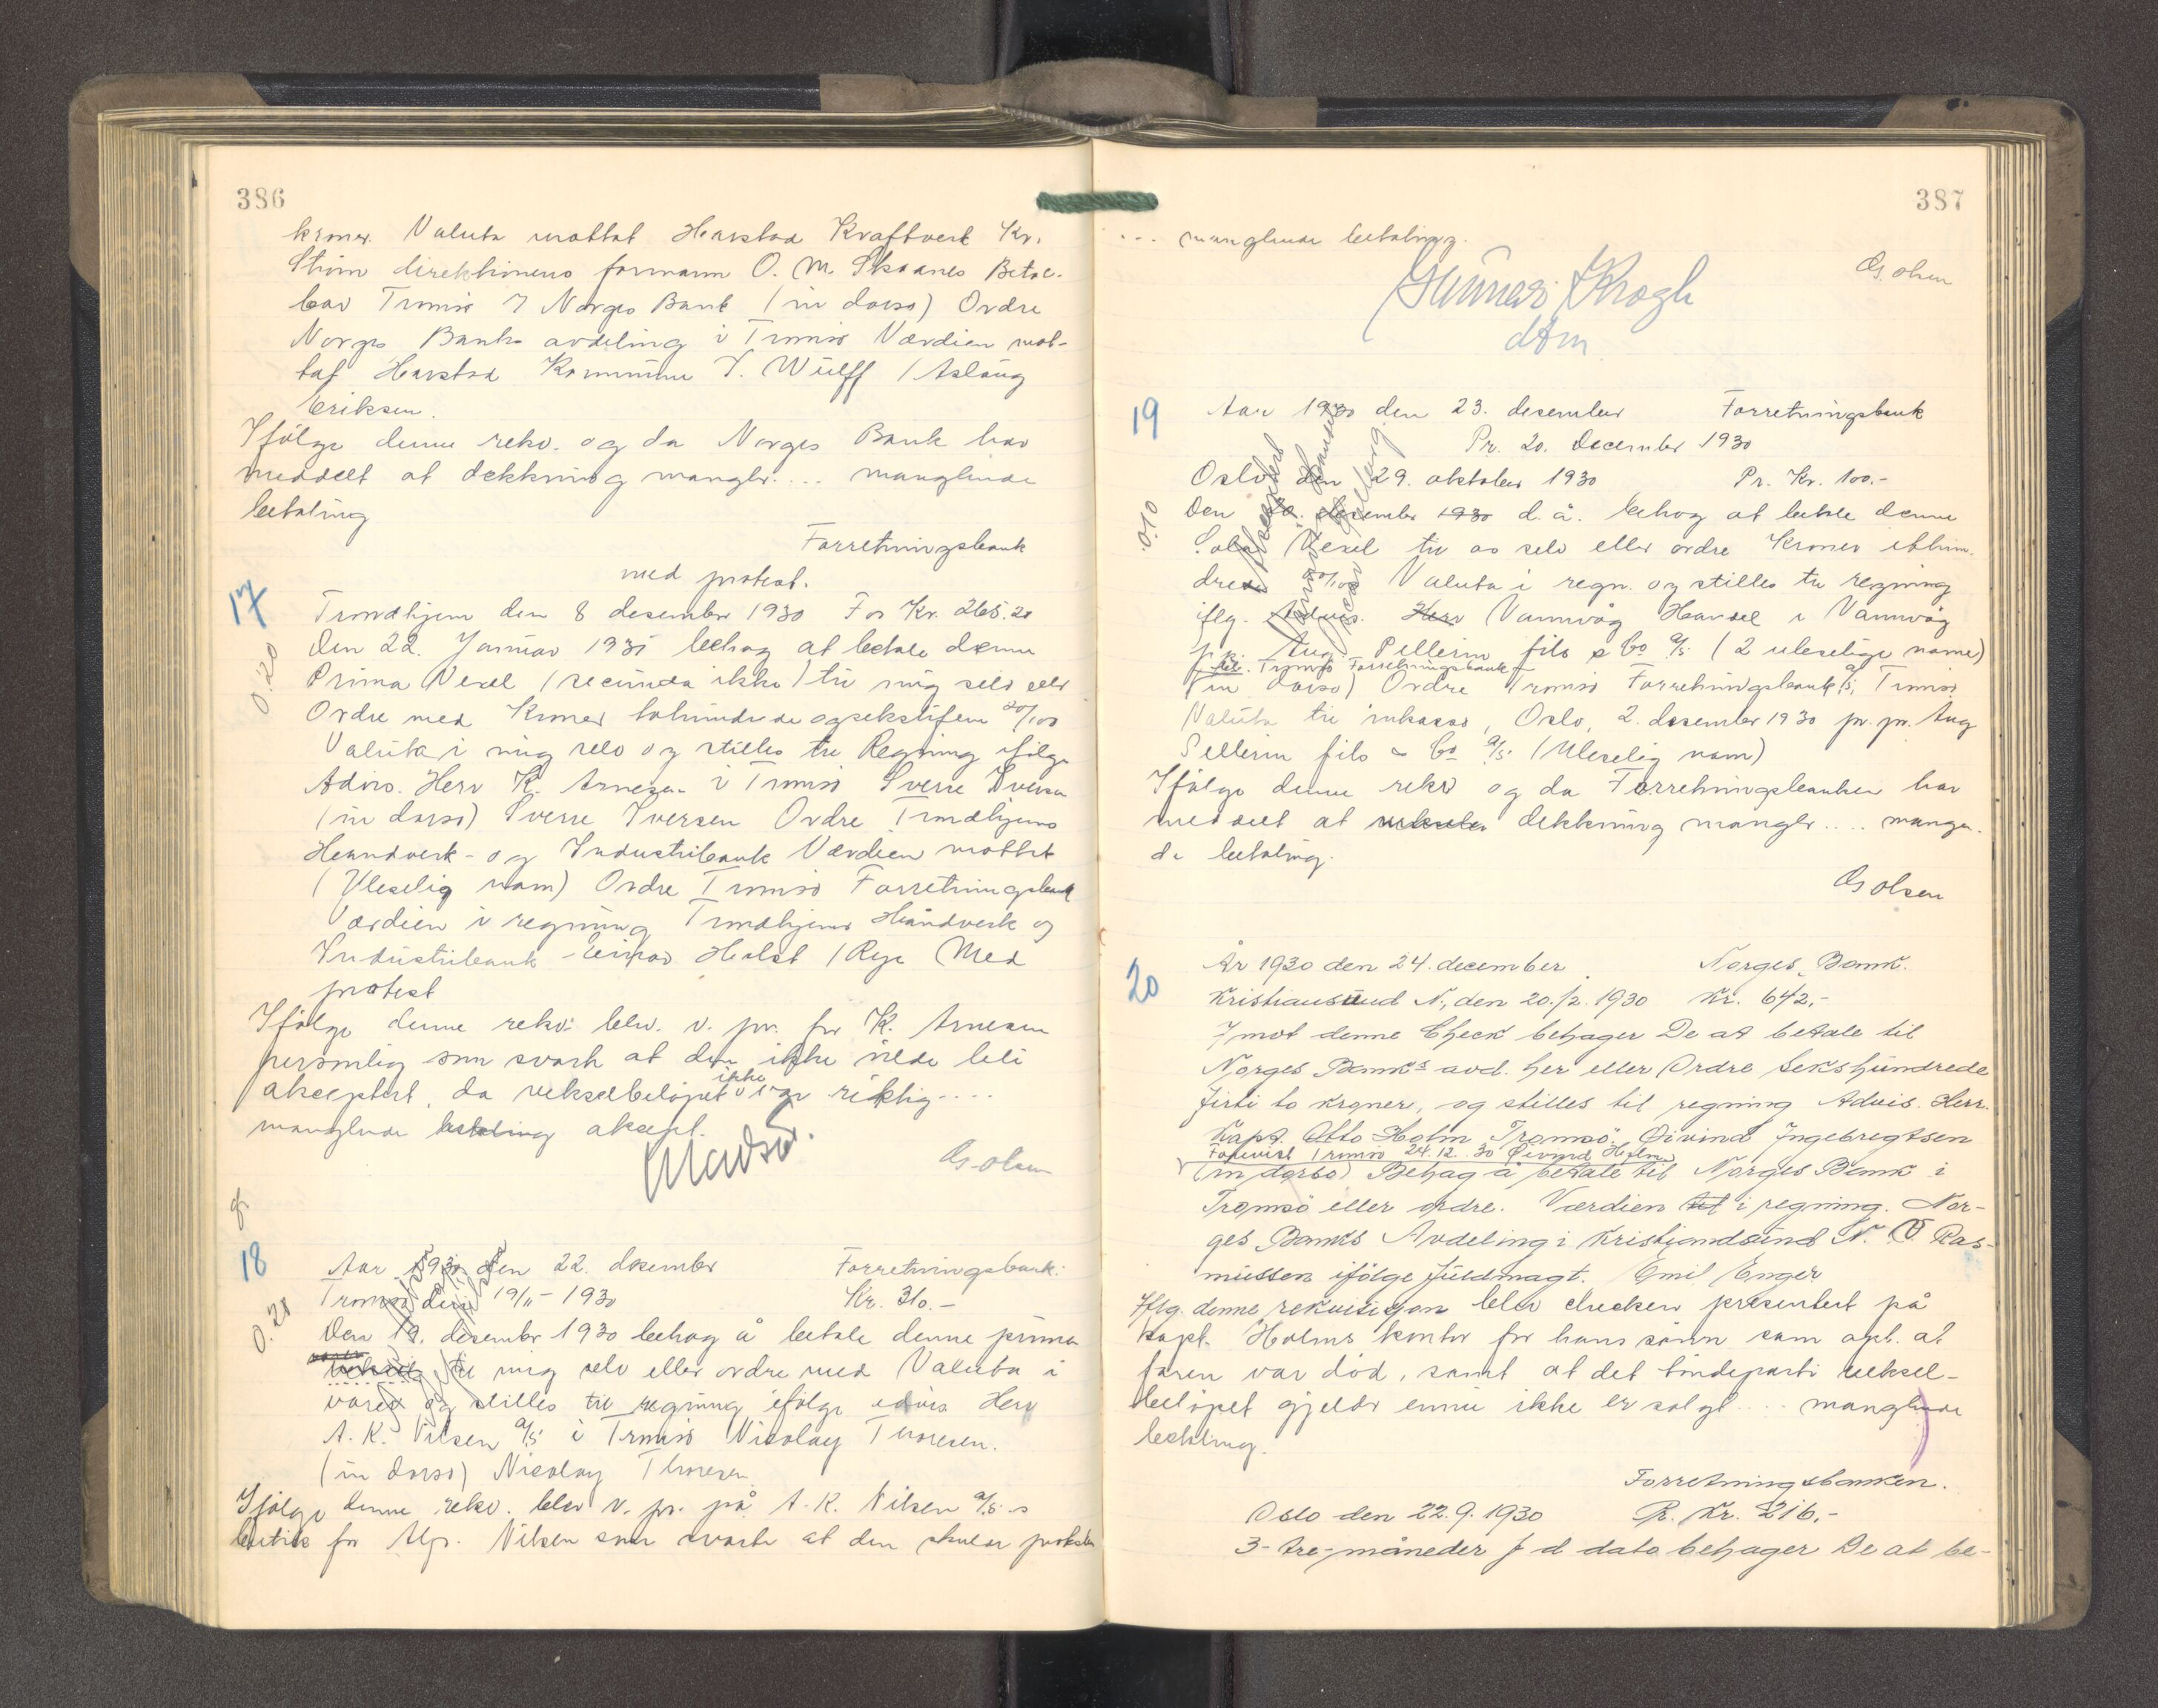 386
kroner. Valuta mottat Harstad Kraftverk Kr.
Strøm direktionens formann O. M. Skoanes Betal-
bar Tromsø i Norges Bank (in dorso) Ordre
Norges Banks avdeling i Tromsø Værdien mot-
tat Harstad Kommune T. Wulff / Aslaug
Eriksen.
Ifølge denne rekv. og da Norges Bank har
meddelt at dekkning mangler .... manglende
betaling
Forretningsbank
med protest.
17
0.20
Trondhjem den 8 desember 1930 For Kr. 265.20
Den 22. Januar 1931 behag at betale denne
Prima Vexel (secunda ikke) til mig selv eller
Ordre med Kroner tohundrede og sekstifem 20/100
Valuta i mig selv og stilles til Regning ifølge
Advis. Herr K. Arnesen i Tromsø Sverre Iversen
(in dorso) Sverre Iversen Ordre Trondhjems
Haandverk- og Industribank Værdien mottat
(Uleselig navn) Ordre Tromsø Forretningsbank
Værdien i regning Trondhjems Håndverk og
Industribank Einar Holst / Rye Med
protest
Ifølge denne rekv. blev v. pr. for K. Arnesen
personlig som svarte at den ikke vilde bli
akseptert, da vekselbeløpet ikke var riktig ....
manglende betaling aksept.
G. Olsen
18
0.20
Aar 1930 den 22. desember Forretningsbank.
Tromsø den 19/11 - 1930 Kr. 310.-
Den 19. desember 1930 behag å betale denne prima
veksel til mig selv eller ordre med Valuta i
varer og stilles til regning ifølge advis Herr
A. K. Nilsen A/S i Tromsø Nicolay Thoresen.
(in dorso) Nicolay Thoresen
Ifølge denne rekv. blev v. pr. på A. K. Nilsen A/S-s
butik for Alf. Nilsen som svarte at den skulde protesteres
387
... manglende betaling.
G. Olsen
Gunnar Krogh
dfm
19
0.10
Aar 1930 den 23. desember Forretningsbank
Pr. 20. December 1930
Oslo den 29. oktober 1930 Pr. Kr. 100.-
Den 20. desember 1930 d. å. behag at betale denne
Sola Vexel til os selv eller ordre Kroner etthun-
drede 00/100 Valuta i regn. og stilles til regning
iflg. Advis. Herr Vannvåg Handel i Vannvåg
p. p. Aug. Pellerin fils & Co A/S (2 uleselige navne)
Tromsø Forretningsbank
(in dorso) Ordre Tromsø Forretningsbank A/S, Tromsø
Valuta til inkasso, Oslo, 2. desember 1930 pr. pr. Aug
Pellerin fils & Co A/S (Uleselig navn)
Ifølge denne rekv og da Forretningsbanken har
meddelt at dekkning mangler .... manglen-
de betaling.
G Olsen
20
År 1930 den 24. december. Norges Bank.
Kristiansund N., den 20./2. 1930 Kr. 642,-
Imot denne Check behager De at betale til
Norges Banks avd. her eller Ordre Sekshundrede
firti to kroner, og stilles til regning Advis. Herr.
Kapt. Otto Holm Tromsø. Øivind Ingebregtsen
Forevist Tromsø 24.12.30 Øivind Holm
(in dorso) Behag å betale til Norges Bank i
Tromsø eller ordre. Værdien i regning. Nor-
ges Banks Avdeling i Kristiansund N. O Ras-
mussen ifølge fuldmagt. Emil Enger
Iflg. denne rekvisisjon blev checken presentert på
kapt. Holms kontor for hans sønn som opl. at
faren var død, samt at det tøndeparti veksel-
beløpet gjelder ennu ikke er solgt .... manglende
betaling.
Forretningsbanken.
Oslo den 22.9.1930 P. Kr. 216,-
3-tre-måneder f d dato behager De at be-